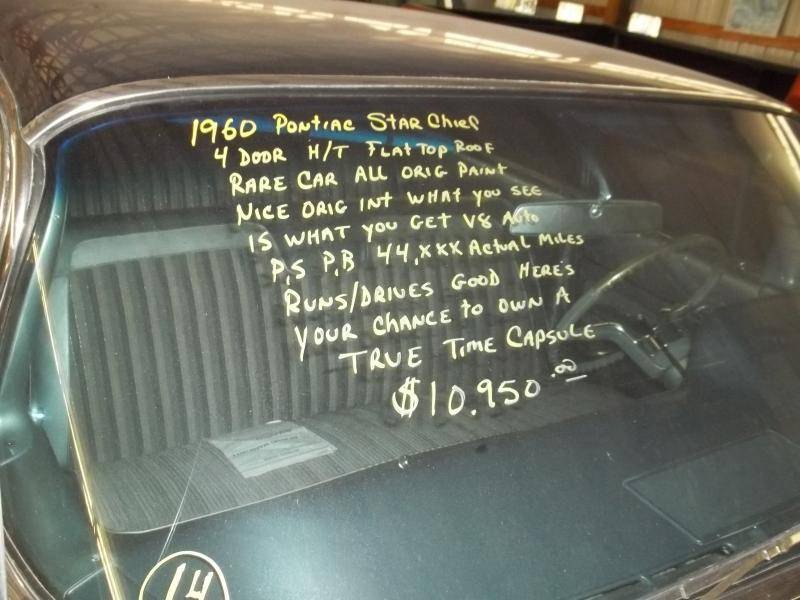 1960 PONTIAC STAR CHIEF
4 DOOR H/T FLAT TOP ROOF
RARE CAR ALL ORIG PAINT
NICE ORIG INT WHAT YOU SEE
IS WHAT YOU GET V8 AUTO
P.S P.B 44,XXX ACTUAL MILES
RUNS/DRIVES GOOD HERE'S
YOUR CHANCE TO OWN A
TRUE TIME CAPSULE
$10.950.00
14